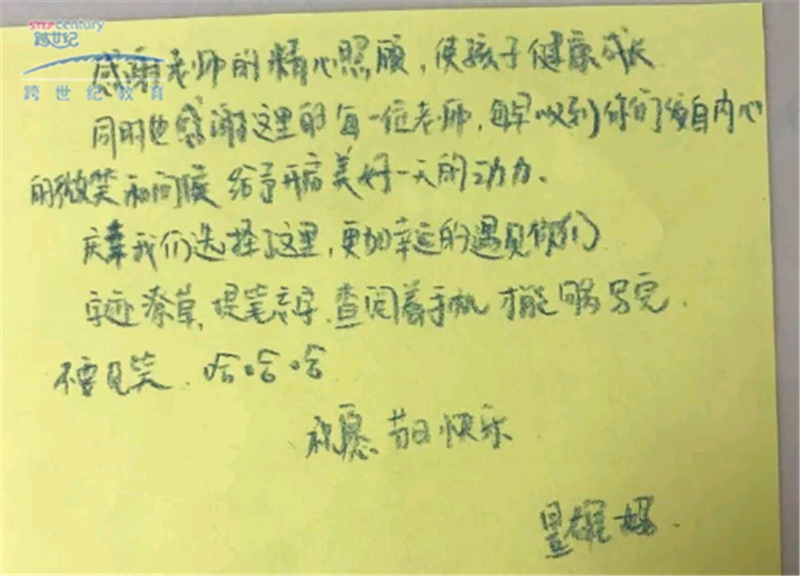 STEPCentury
跨世纪
跨世纪教育
感谢老师的精心照顾,使孩子健康成长
同时也感谢这里的每一位老师,每早收到你们发自内心
的微笑和问候 给予开启美好一天的动力、
庆幸我们选择了这里,更加幸运的遇见你们
字迹潦草、提笔忘字、查阅着手机 才能够写完、
不要见笑、哈哈哈
祝愿 节日快乐
雄妈